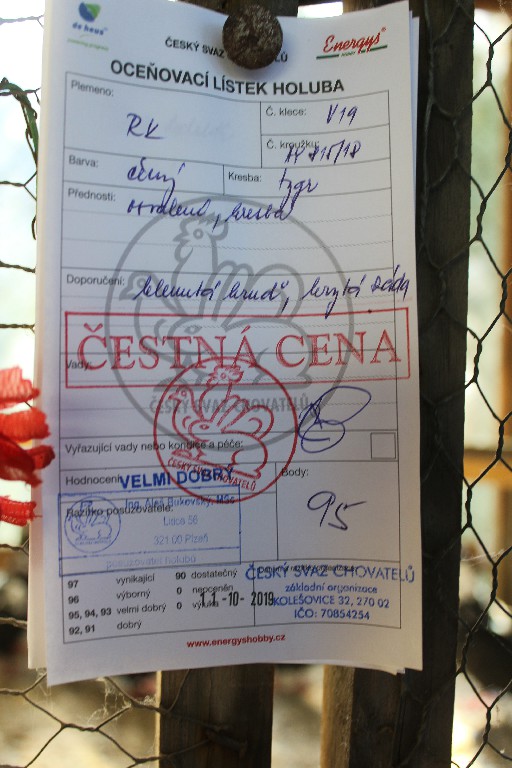 de heus
ČESKÝ SVAZ CHOVATELŮ
Energys
OCEŇOVACÍ LÍSTEK HOLUBA
Plemeno:
RK
Č. klece: V19
Č. kroužku:
Barva: černý
Kresba: tygr
Přednosti:
, kresba
Doporučení: klenutá hruď, krytá záda
ČESTNÁ CENA
Vady:
ČESKÝ SVAZ CHOVATELŮ
Vyřazující vady nebo kondice a péče:
ČESKÝ SVAZ CHOVATELŮ
Hodnocení: VELMI DOBRÝ
Body:
95
Razítko posuzovatele:
Ing. Aleš Bukovský, MSc
56
321 00 Plzeň
posuzovatel holubů
97 vynikající 90 dostatečný
96 výborný 0 neoceněn
95, 94, 93 velmi dobrý 0 výluka
92, 91 dobrý
11.-10-2019
ČESKÝ SVAZ CHOVATELŮ
základní organizace
KOLEŠOVICE 32, 270 02
IČO: 70854254
www.energyshobby.cz